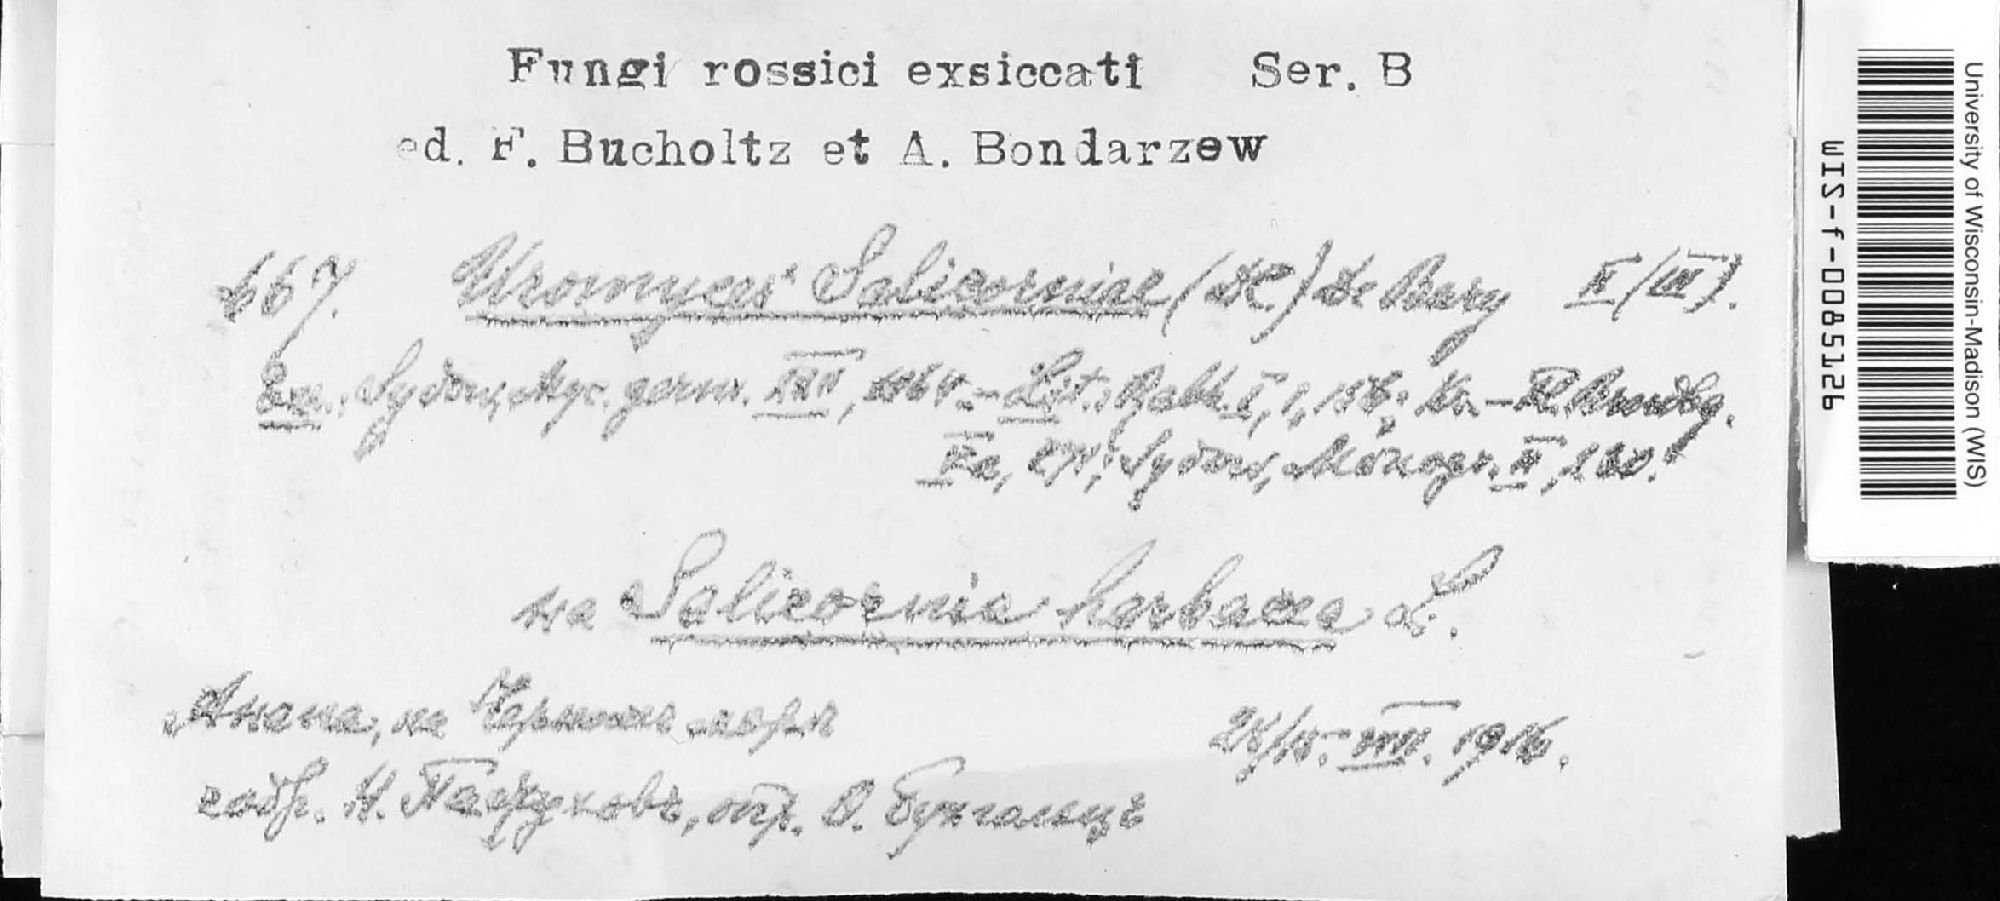 Fungi rossici exsiccati Ser. B
ed. F. Bucholtz et A. Bondarzew
667. Uromyces Salicorniae (DC.) De Bary II (III).
Exs.: Sydow, Myc. germ. – Lit.: Rabh. I, 1, Kr. –
Va, Sydow, Monogr. II,
на Salicornia herbacea L.
Анапа, на Черномъ морѣ
28/15. VIII. 1916.
собр. Н. опр. Ѳ. Бухгольцъ
University of Wisconsin-Madison (WIS)
WIS-f-0085126